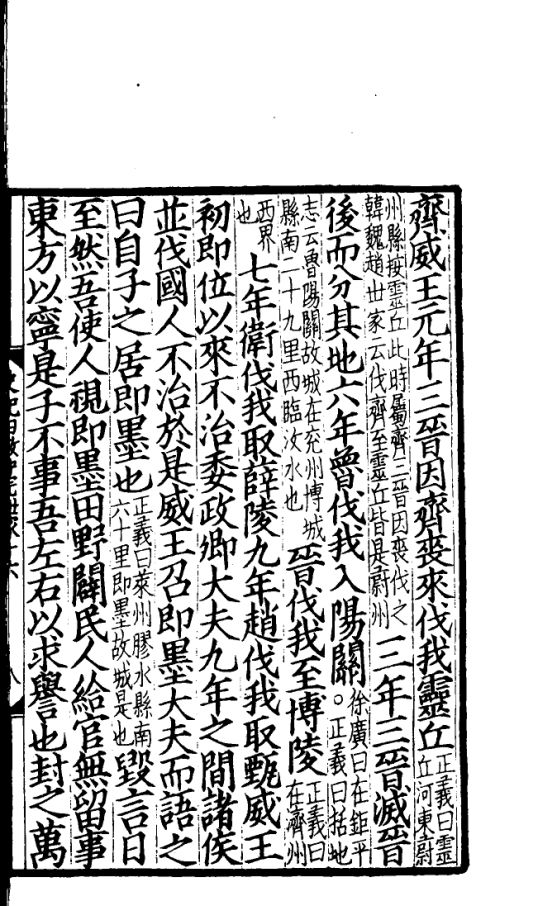 齊威王元年三晉因齊喪來伐我靈丘正義曰靈丘河東蔚
州縣按靈丘此時屬齊三晉因喪伐之韓魏趙世家云伐齊至靈丘皆是蔚州三年三晉滅晉
後而分其地六年魯伐我入陽關。徐廣曰在鉅平。正義曰括地
志云魯陽關故城在兗州博城縣南二十九里西臨汶水也晉伐我至博陵正義曰在濟州
西界也七年衛伐我取薛陵九年趙伐我取甄威王
初即位以來不治委政卿大夫九年之間諸侯
並伐國人不治於是威王召即墨大夫而語之
曰自子之居即墨也正義曰萊州膠水縣南六十里即墨故城是也毀言日
至然吾使人視即墨田野闢民人給官無留事
東方以寧是子不事吾左右以求譽也封之萬